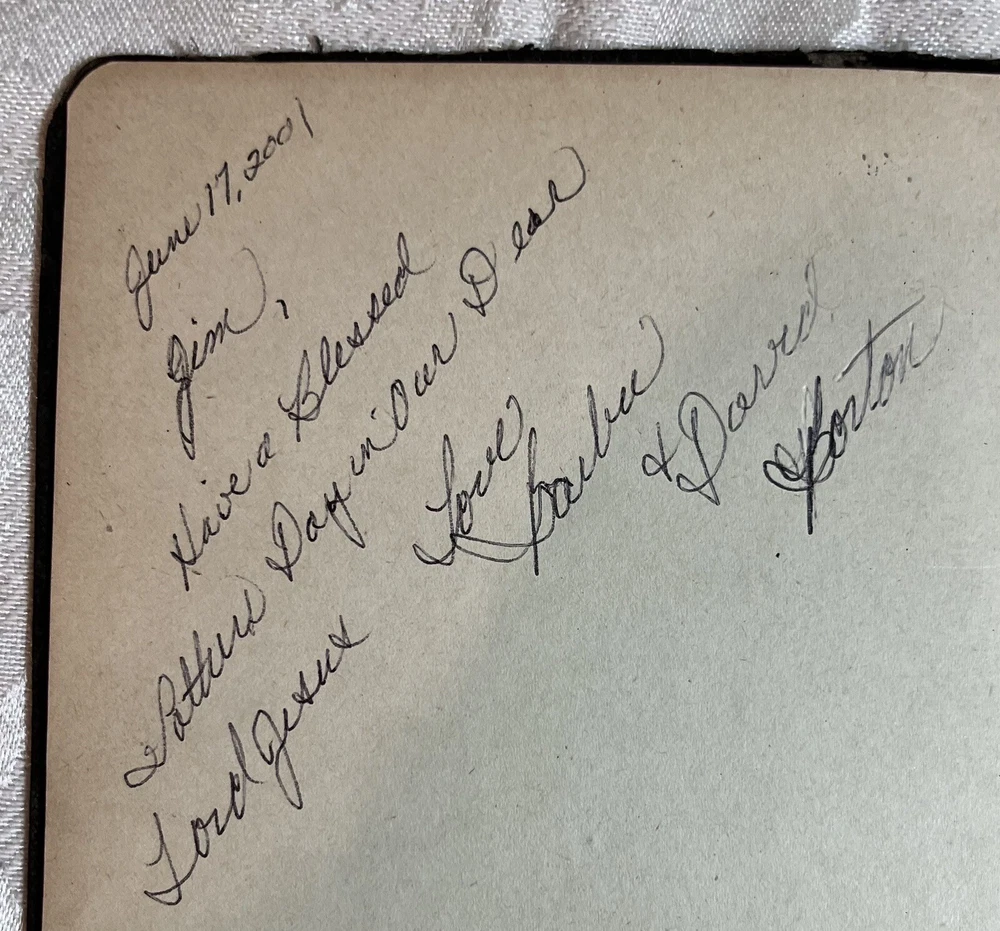 June 17, 2001
Jim,
Have a Blessed
Fathers Day in Our Dear
Lord Jesus
Love
& David
Borton